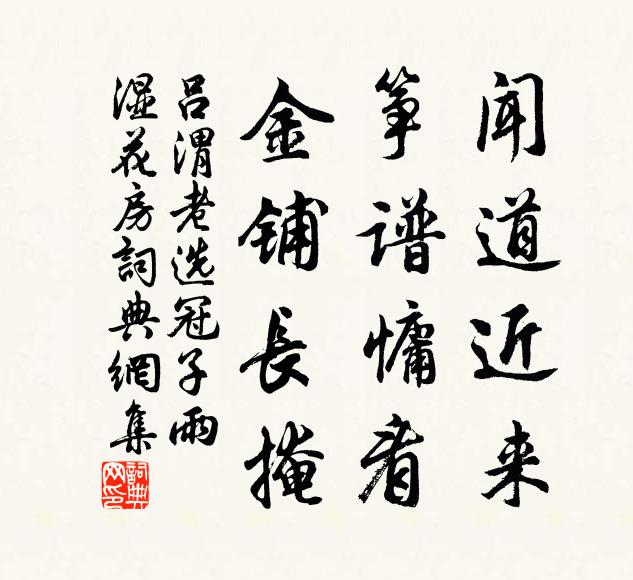 闻道近来
筝谱慵看
金铺長掩
吕渭老选冠子雨
湿花房詞典網集
詞典网印